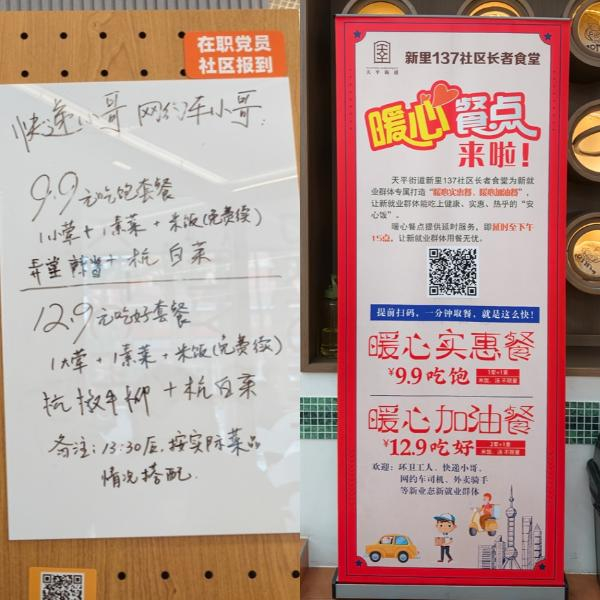 在职党员
社区报到
快递小哥 网约车小哥:
9.9元吃饱套餐
1小荤+1素菜+米饭(免费续)
+杭白菜
12.9元吃好套餐
1大荤+1素菜+米饭(免费续)
杭椒牛柳+杭白菜
备注:13:30后,按实际菜品
情况搭配.
天平街道
新里137社区长者食堂
暖心餐点
来啦!
天平街道新里137社区长者食堂为新就
业群体专属打造“暖心实惠餐、暖心加油餐”,
让新就业群体能吃上健康、实惠、热乎的“安
心饭”。
暖心餐点提供延时服务,即延时至下午
15点,让新就业群体用餐无忧。
提前扫码,一分钟取餐,就是这么快!
暖心实惠餐
¥9.9吃饱
1荤+1素
米饭、汤 不限量
暖心加油餐
¥12.9吃好
2荤+1素
米饭、汤 不限量
欢迎:环卫工人、快递小哥、
网约车司机、外卖骑手
等新业态新就业群体